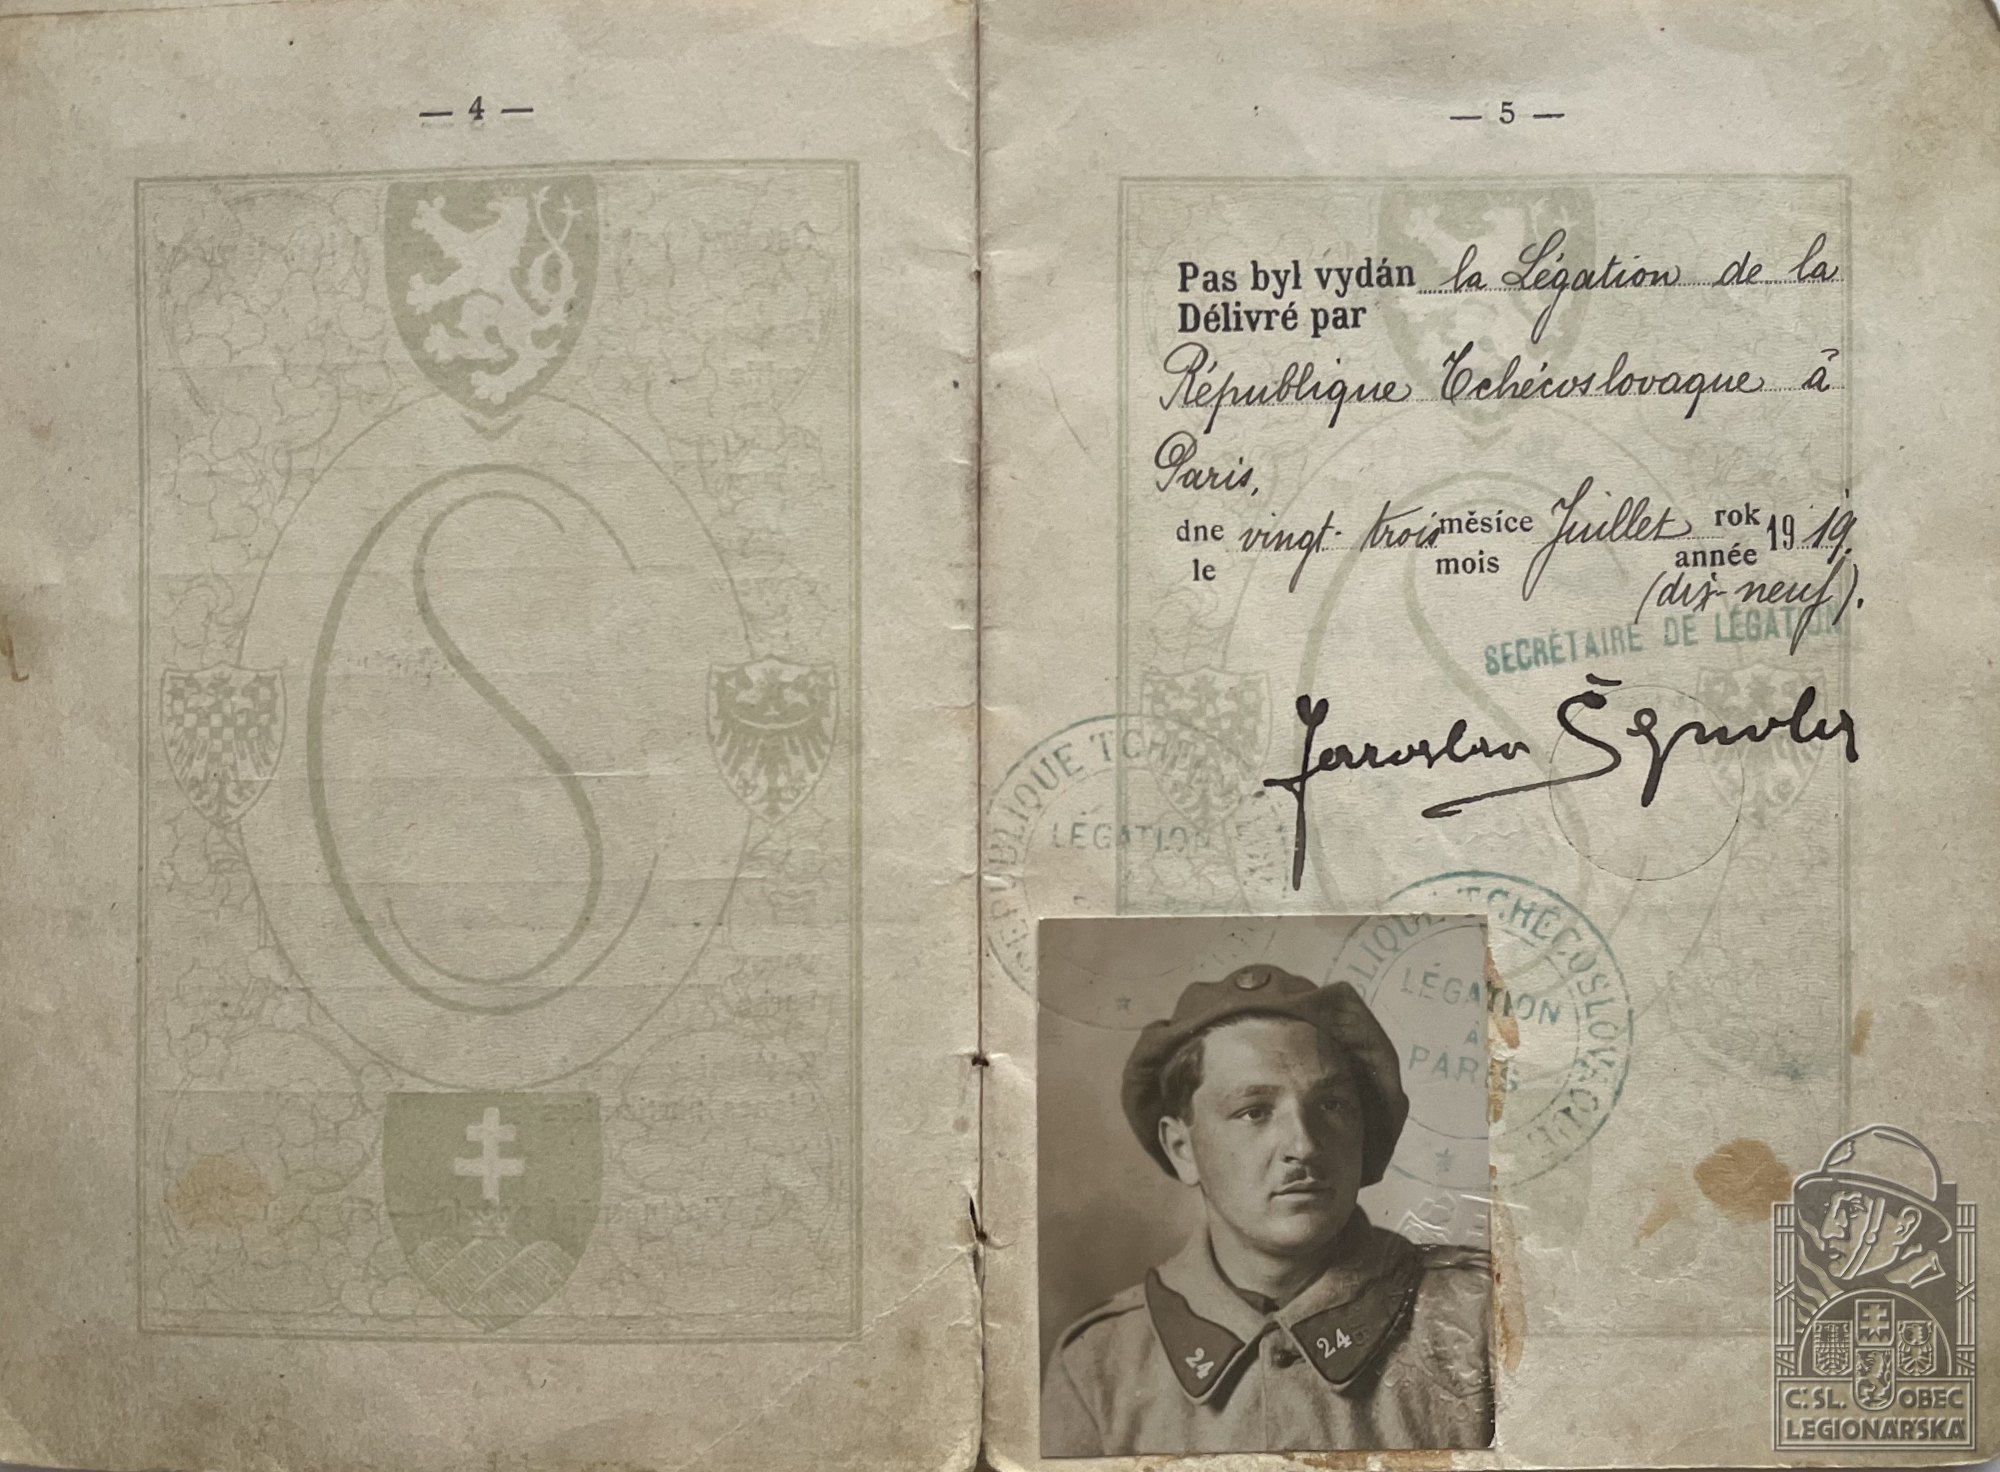 — 4 —
— 5 —
Pas byl vydán la Légation de la
Délivré par
République Tchécoslovaque à
Paris,
dne vingt-trois měsíce Juillet rok 1919.
le mois année
(dix-neuf).
SECRÉTAIRE DE LÉGATION
Jaroslav
RÉPUBLIQUE TCHÉ
LÉGATION
RÉPUBLIQUE TCHÉCOSLOVAQUE
LÉGATION
À
PARIS
24 24
Č. SL. OBEC
LEGIONÁŘSKÁ